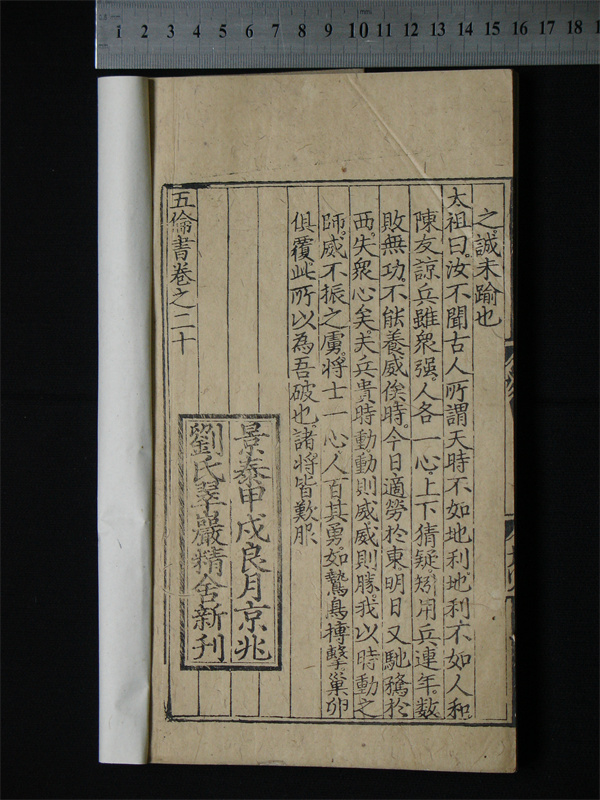 之。誠未踰也
太祖曰。汝不聞古人所謂天時不如地利。地利不如人和。
陳友諒兵雖衆强。人各一心。上下猜疑。矧用兵連年。數
敗無功。不能養威俟時。今日適勞於東明日又馳騖於
西。失衆心矣。夫兵貴時動。動則威。威則勝。我以時動之
師。威不振之虜。將士一心。人百其勇。如鷙鳥搏擊。巢卵
俱覆。此所以為吾破也。諸將皆歎服。
景泰甲戌良月京兆
劉氏翠巖精舍新刊
五倫書卷之二十
1 2 3 4 5 6 7 8 9 10 11 12 13 14 15 16 17 18